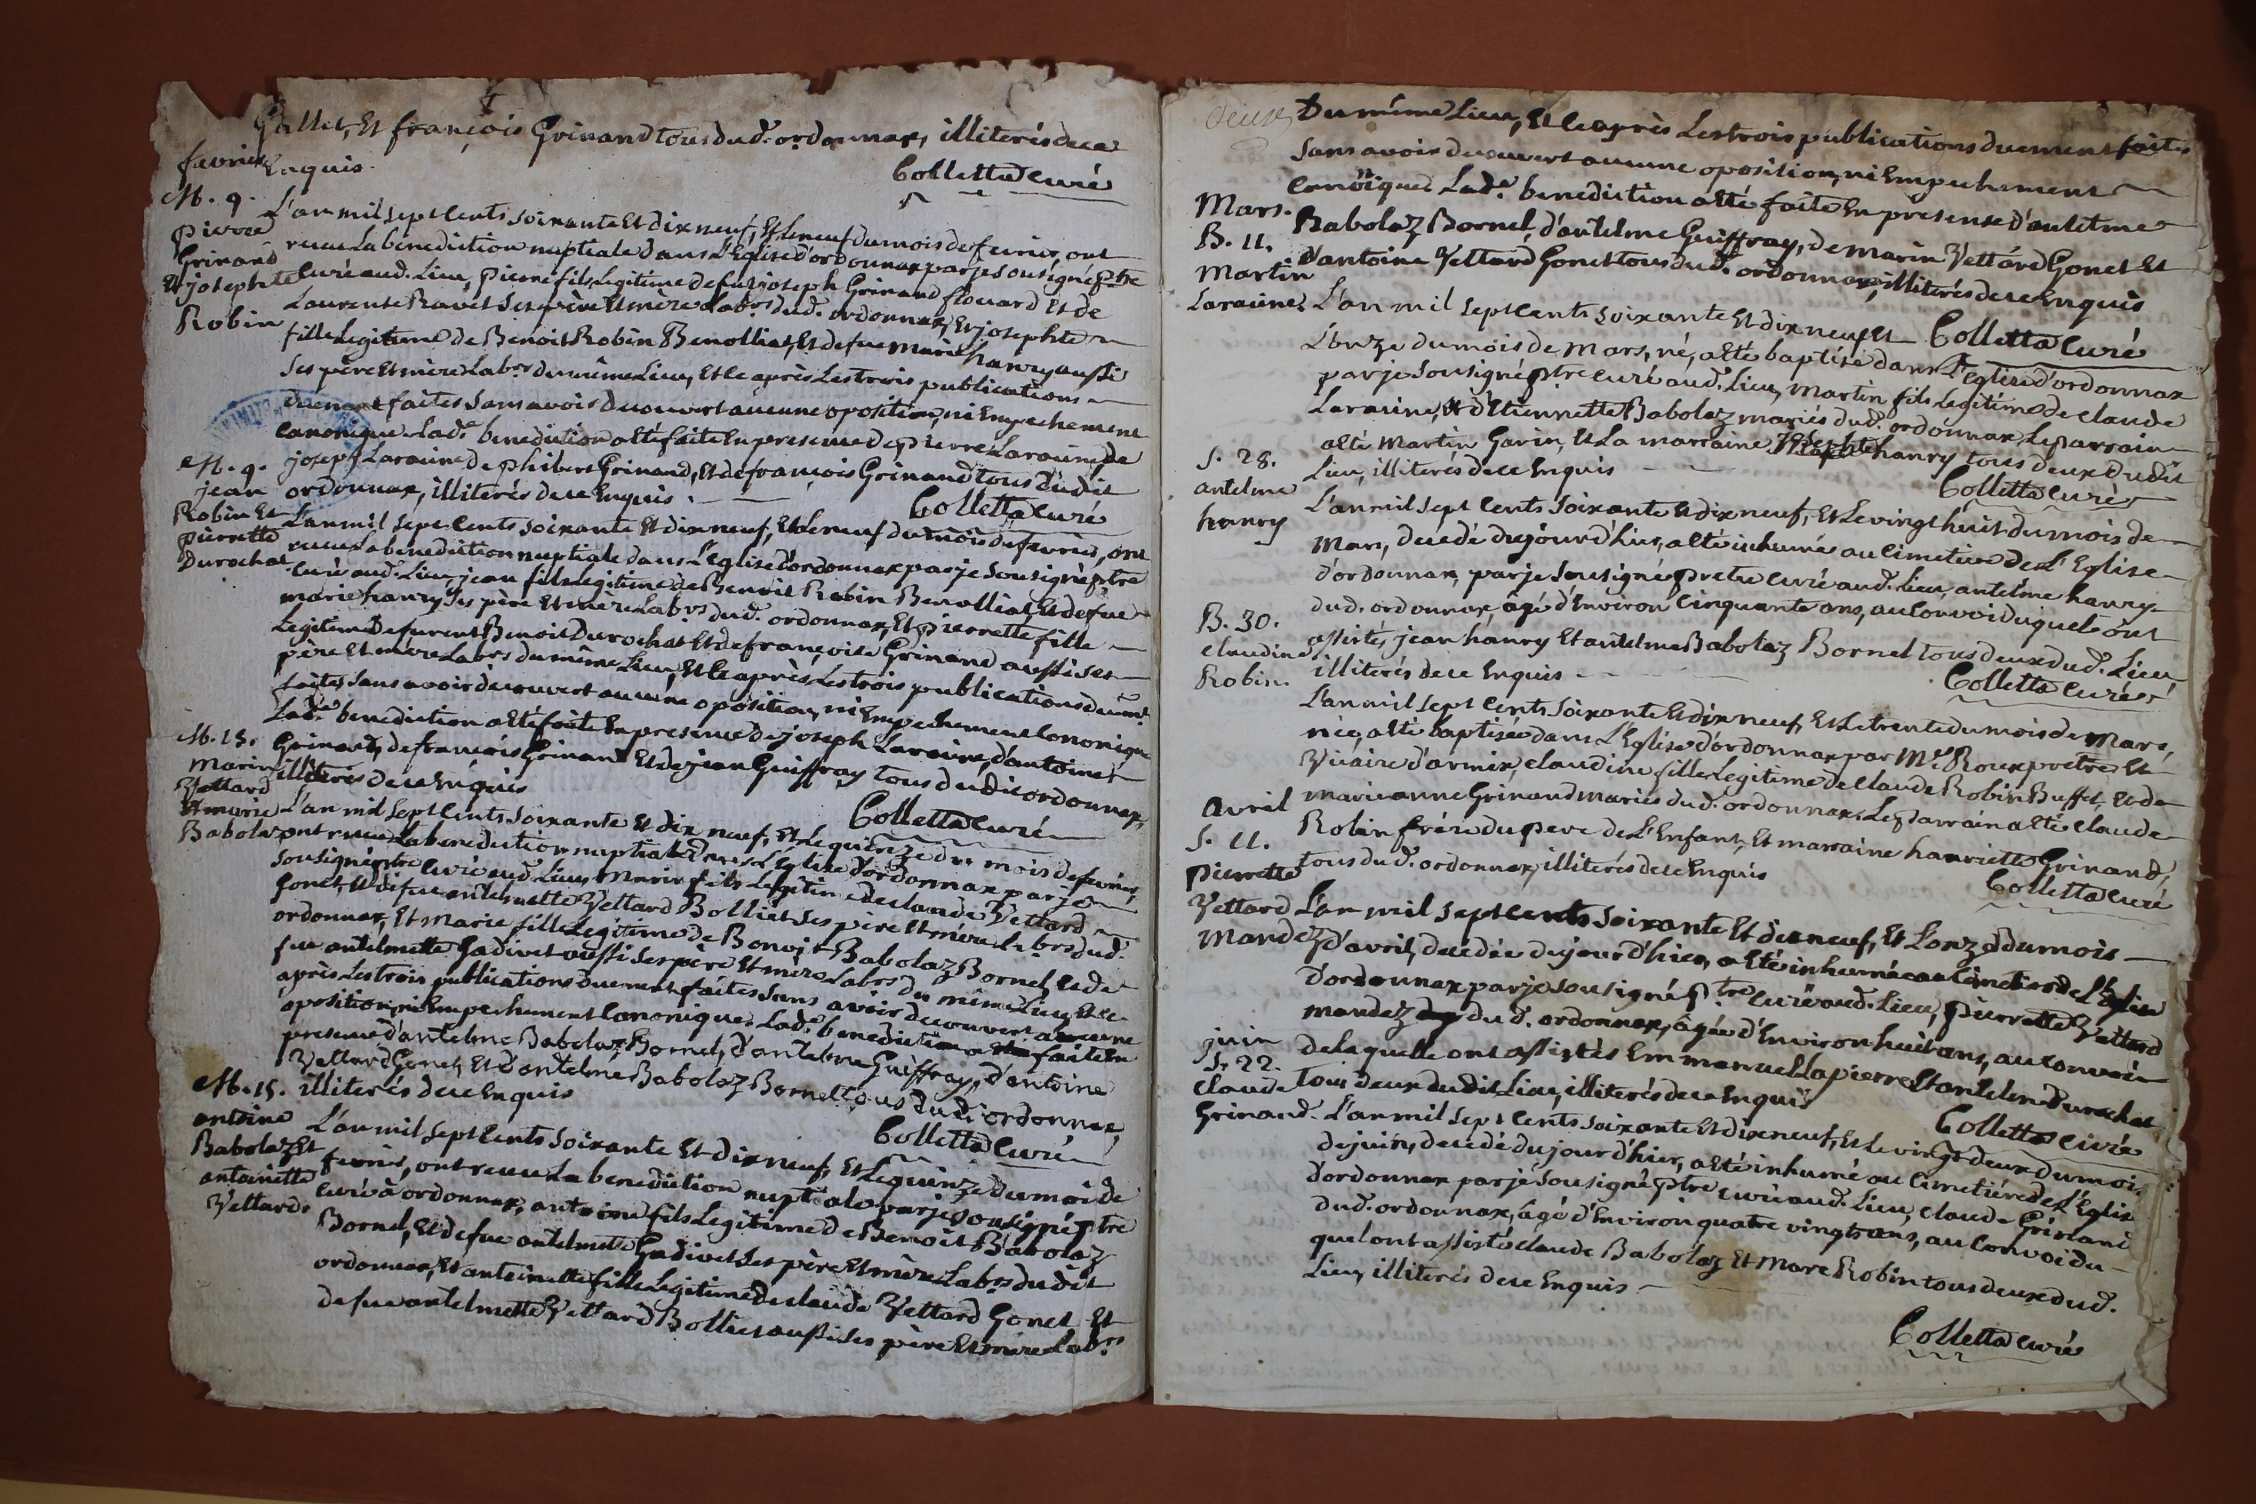 Gallet, Et françois Grinand tous dud. ordonnax, illiterés de ce
fevrier Enquis.
Colletta curé
M. 9. L'an mil sept Cents soixante Et dix neuf, Et le neuf du mois de fevrier, ont
pierre reçu La benediction nuptiale dans L'Eglise d'ordonnax par je sousigné ptre
Grinand Curé aud. Lieu, pierre fils Legitime de feu joseph Grinand flouard Et de
Et josephte Laurense Ravet ses père Et mère Labrs. dud. ordonnax, Et josephte
Robin fille Legitime de Benoit Robin Benolliat, Et de fue marie hanry aussi
ses père Et mère Labrs du même Lieu, Et ce après Les trois publications
duement faites sans avoir decouvert aucune oposition, ni Empechement
canonique. Lade. benediction a été faite En presence de pierre Laraine, de
M. 9. joseph Laraine de phibert Grinand, Et de françois Grinand tous dudit
jean ordonnax, illiterés de ce Enquis.
Colletta curé
Robin Et L'an mil sept Cents soixante Et dix neuf, Et le neuf du mois de fevrier, ont
pierrette reçu La benediction nuptiale dans L'Eglise d'ordonnax par je sousigné ptre
Durochat Curé aud. Lieu, jean fils Legitime de Benoit Robin Benolliat, Et de fue
marie hanry ses père Et mère Labrs. dud. ordonnax, Et pierrette fille
Legitime de furent Benoit Durochat Et de françoise Grinand aussi ses
père Et mère Labrs du même Lieu, Et ce après Les trois publications duemt.
faites, sans avoir decouvert aucune oposition, ni Empechement Canonique
Lade. benediction a été faite En presence de joseph Laraine, d'antoine
M. 15. Grinand, de françois Grinand Et de jean Guiffray tous dudit ordonnax,
marin illiterés de ce Enquis
Colletta curé
Vettard
Et marie L'an mil sept Cents soixante Et dix neuf, Et Le quinze du mois de fevrier,
Babolaz ont reçu La benediction nuptiale dans L'Eglise d'ordonnax par je
sousigné ptre curé aud. Lieu, Marin fils Legitime de claude Vettard
Gonet, Et de fue antelmette Vettard Bolliet ses père Et mère Labrs dud.
ordonnax, Et Marie fille Legitime de Benoit Babolaz Bornel, Et de
fue antelmette Gadivet aussi ses père Et mère Labrs du même Lieu, Et ce
après Les trois publications duement faites sans avoir decouvert aucune
oposition, ni Empechement Canonique. Lade. benediction a été faite En
presence d'antelme Babolaz Bornel, d'antelme Guiffray, d'antoine
Vettard Gonet, Et d'antelme Babolaz Bornel tous dudi ordonnax,
M. 15. illiterés de ce Enquis
Colletta Curé
antoine L'an mil sept Cents soixante Et dix neuf, Et Le quinze du mois de
Babolaz Et fevrier, ont reçu La benediction nuptiale par je sousigné ptre
antoinette curé à ordonnax, antoine fils Legitime de Benoit Babolaz
Vettard. Bornel, Et de fue antelmette Gadivet ses père Et mère Labrs dudit
ordonnax, Et antoinette fille Legitime de claude Vettard Gonet Et
de fue antelmette Vettard Bolliet aussi ses père Et mère Labrs.
deux Du même Lieu, Et ce après Les trois publications duement faites
sans avoir decouvert aucune oposition, ni Empechement
canonique. Lade. benediction a été faite En presense d'antelme
Mars. Babolaz Bornel, d'antelme Guiffray, de marin Vettard Gonet Et
B. 11. d'antoine Vettard Gonet tous dud. ordonnax, illiterés de ce Enquis
Colletta Curé
Martin
Laraine. L'an mil sept Cents soixante Et dix neuf Et
L'onze du mois de Mars, né, a été baptisé dans L'Eglise d'ordonnax
par je sousigné ptre curé aud. Lieu, Martin fils Legitime de claude
Laraine, Et d'Etiennette Babolaz mariés dud. ordonnax, Le parrain
a été Martin Garin, Et La marraine josephte hanry tous deux dudit
S. 28. Lieu, illiterés de ce Enquis
Colletta Curé
antelme L'an mil sept Cents soixante Et dix neuf, Et Le vingt huit du mois de
hanry Mars, decedé du jour d'hier, a été inhumé au Cimetiere de L'Eglise
d'ordonnax, par je sousigné pretre curé aud. Lieu, antelme hanry
dud. ordonnax, âgé d'Environ Cinquante ans, au Convoi duquel ont
B. 30. assistés, jean hanry Et antelme Babolaz Bornel tous deux dud. Lieu,
claudine illiterés de ce Enquis
Colletta Curé
Robin. L'an mil sept Cents soixante Et dix neuf, Et Le trente du mois de Mars,
née, a été baptisée dans L'Eglise d'ordonnax par Mr. Roux pretre Et
Vicaire d'armix, claudine fille Legitime de claude Robin Buffet, Et de
marie anne Grinand mariés dud. ordonnax. Le parrain a été claude
avril Robin frére du pere de L'Enfant, Et marraine hanriette Grinand,
S. 11. tous dud. ordonnax, illiterés de ce Enquis
Colletta Curé
pierrette
Vettard L'an mil sept cents soixante Et dix neuf, Et L'onze du mois
Mandez d'avril, decedée du jour d'hier, a été inhumée au Cimetiere de L'Eglise
d'ordonnax par je sousigné Ptre curé aud. Lieu, pierrette Vettard
mandez dud. ordonnax, âgée d'Environ huit ans, au convoi
juin de Laquelle ont assistés Emmanuel Lapierre Et antelme Durochat
S. 22. tous deux dudit Lieu, illiterés de ce Enquis
Colletta Curé
claude
Grinand. L'an mil sept Cents soixante Et dix neuf, Et Le vingt deux du mois
de juin, decedé du jour d'hier, a été inhumé au Cimetiére de L'Eglise
d'ordonnax par je sousigné ptre curé aud. Lieu, claude Grinand
dud. ordonnax, âgé d'Environ quatre vingts ans, au Convoi du
quel ont assistés claude Babolaz Et Marc Robin tous deux dud.
Lieu, illiterés de ce Enquis
Colletta curé